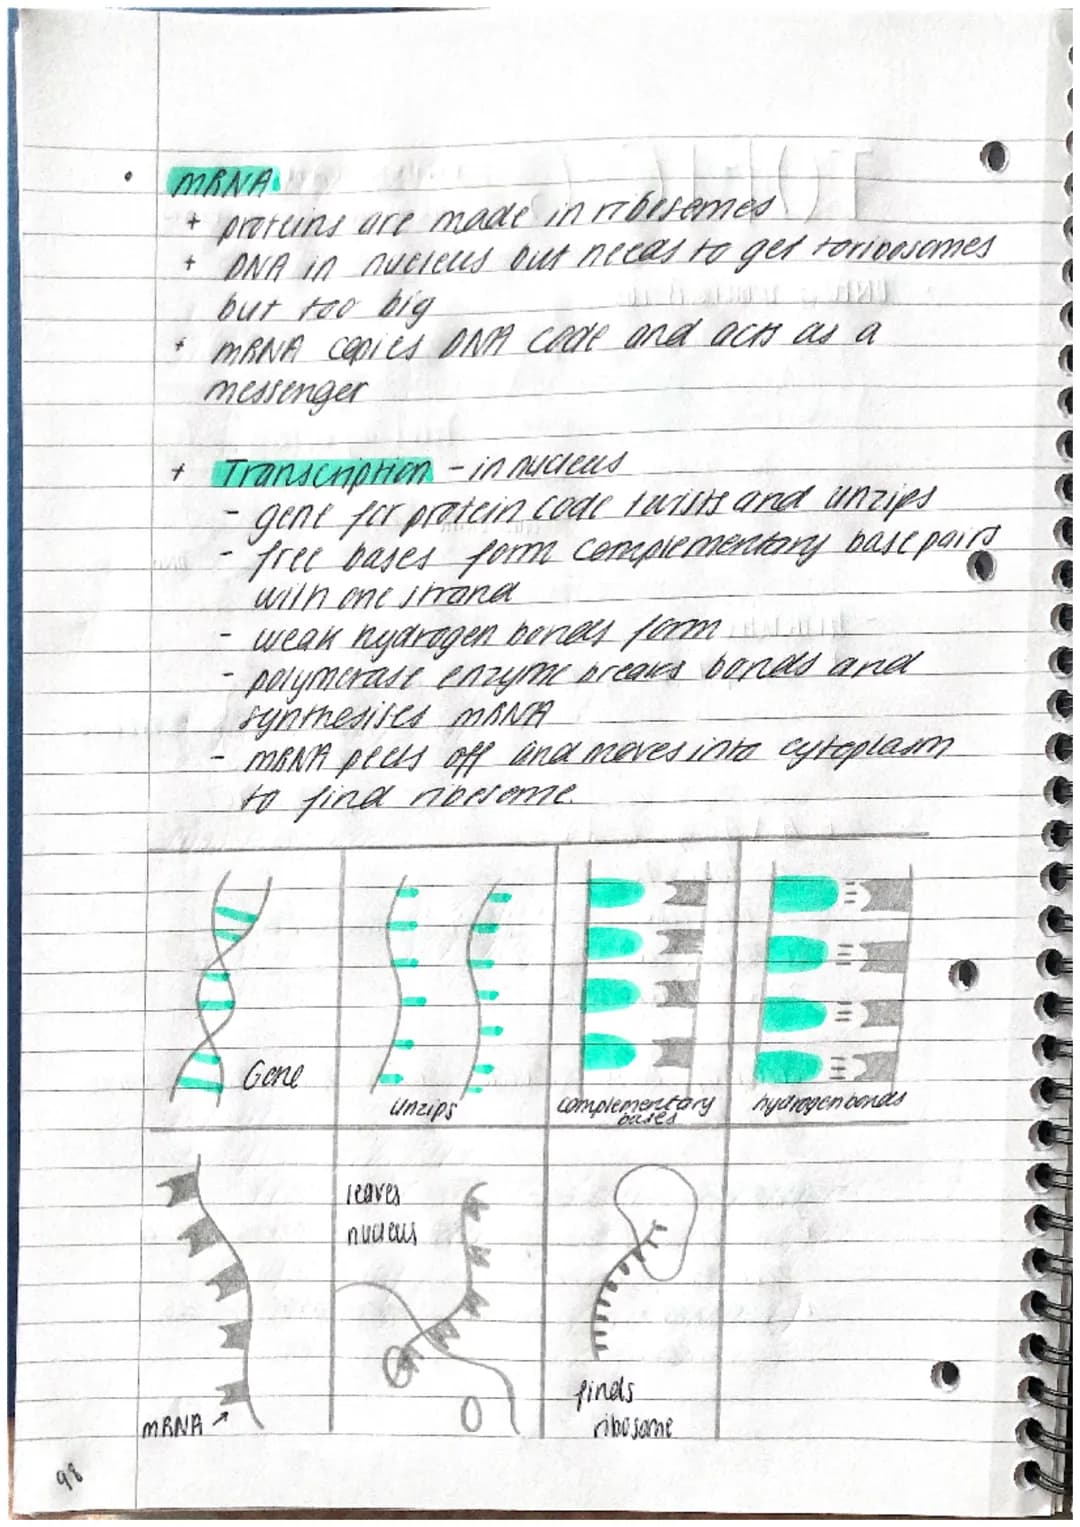 • mRNA
+ proteins are made in ribosomes
+ DNA in nucleus but needs to get to ribosomes
but too big
+ mRNA copies DNA code and acts as a
messenger
+ Transcription - in nucleus
- gene for protein code twists and unzips
- free bases form complementary base pairs
with one strand
- weak hydrogen bonds form
- polymerase enzyme breaks bonds and
synthesises mRNA
- mRNA peels off and moves into cytoplasm
to find ribosome.
Gene
unzips
complementary
bases
hydrogen bonds
mRNA
leaves
nucleus
finds
ribosome
98